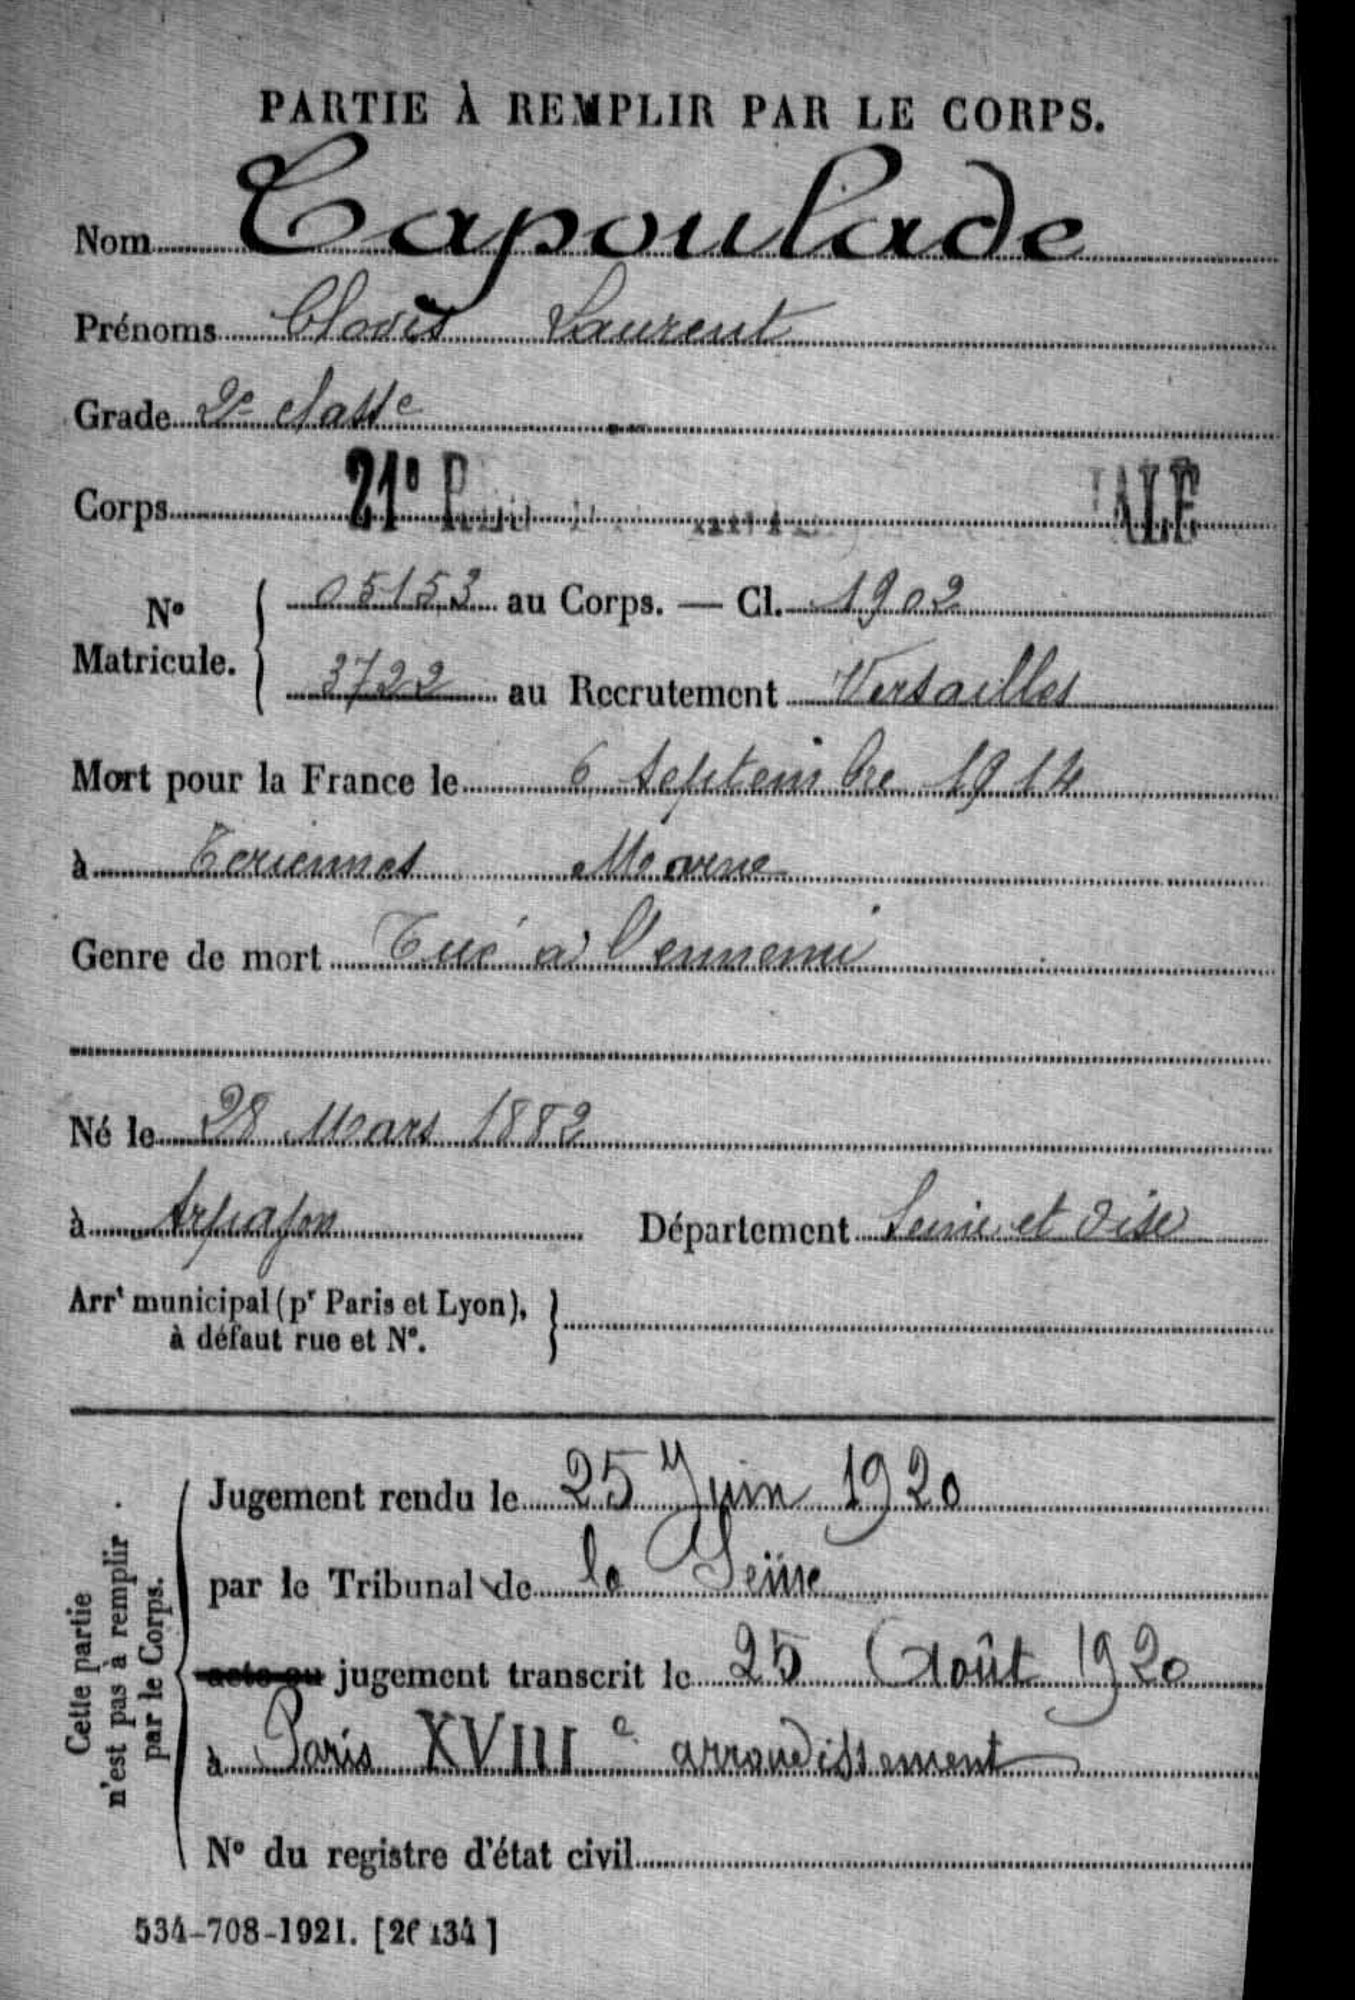 PARTIE À REMPLIR PAR LE CORPS.
Nom Capoulade
Prénoms Clovis Laurent
Grade 2e classe
Corps 21e ALE
No Matricule. 05153 au Corps. — Cl. 1902
3722 au Recrutement Versailles
Mort pour la France le 6 Septembre 1914
à Marne
Genre de mort Tué à l'ennemi
Né le 28 Mars 1882
à Arpajon Département Seine et Oise
Arrt municipal (pr Paris et Lyon),
à défaut rue et No.
Cette partie
n'est pas à remplir
par le Corps.
Jugement rendu le 25 Juin 1920
par le Tribunal de la Seine
acte ou jugement transcrit le 25 Août 1920
à Paris XVIIIe arrondissement
No du registre d'état civil
534-708-1921. [26134]